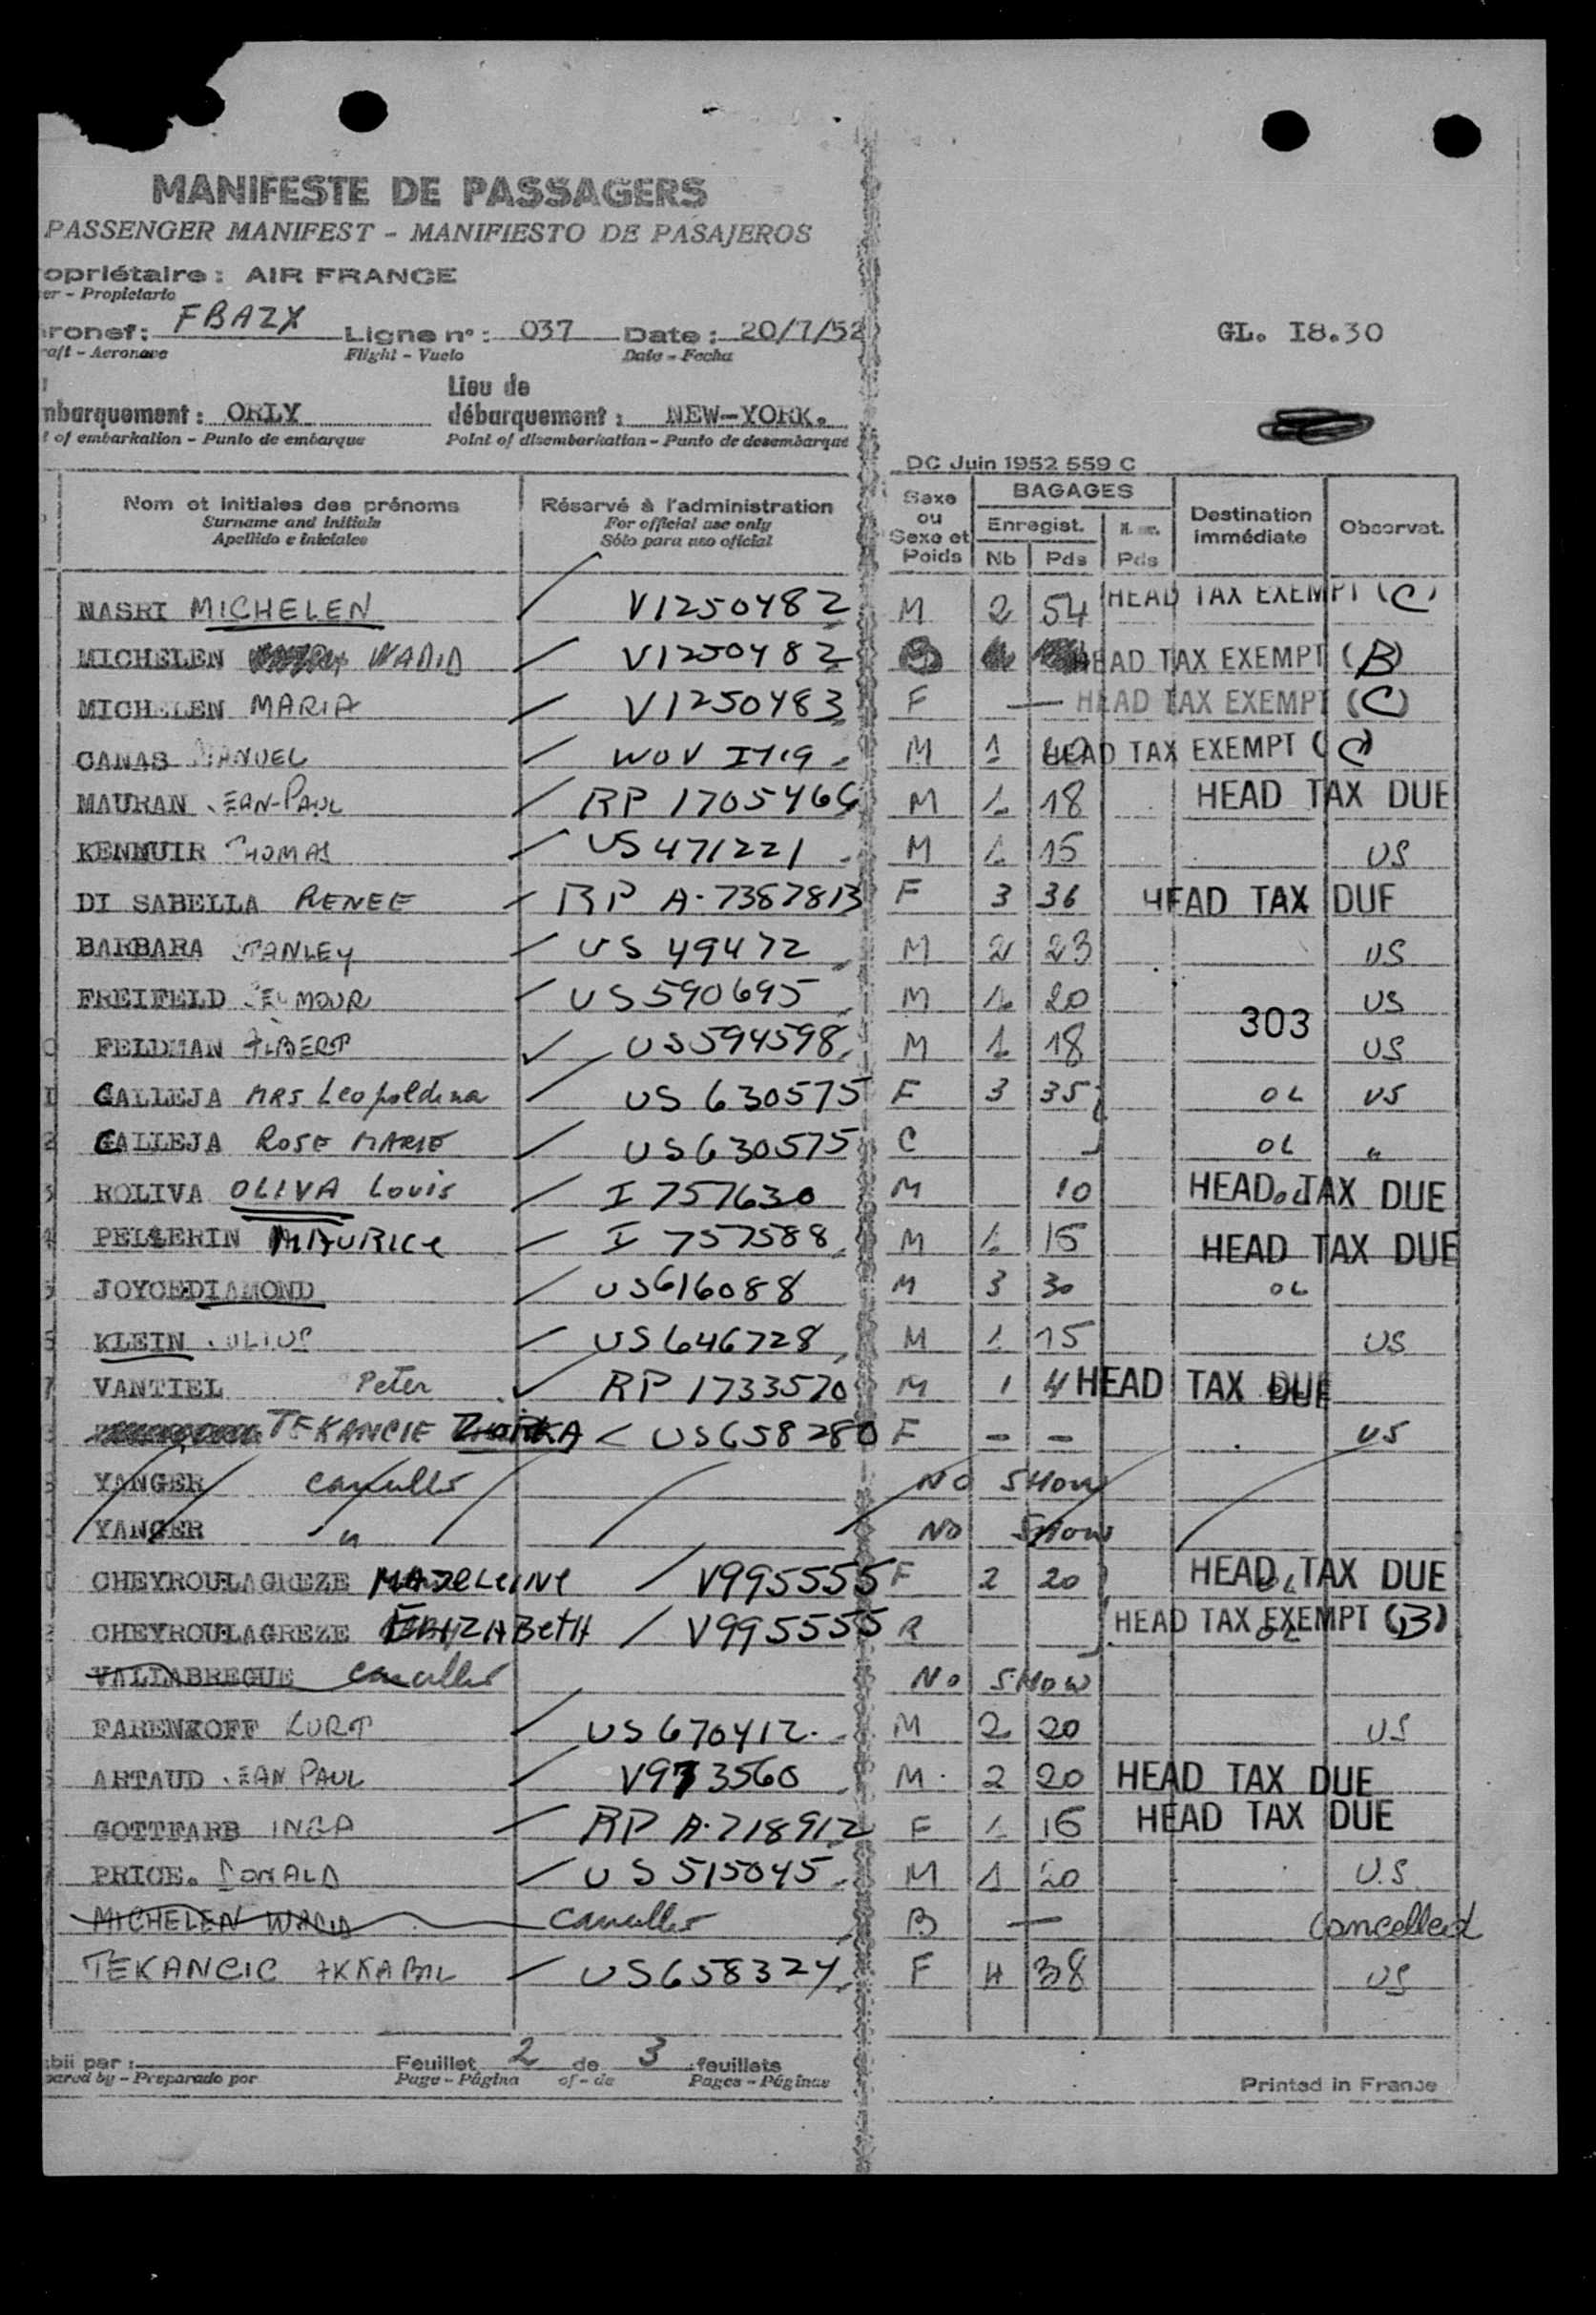 MANIFESTE DE PASSAGERS
PASSENGER MANIFEST - MANIFIESTO DE PASAJEROS
opriétaire : AIR FRANCE
er - Propietario
ronef : FBAZX Ligne n° : 037 Date : 20/7/52
raft - Aeronave Flight - Vuelo Date - Fecha
GL. I8.30
mbarquement : ORLY Lieu de débarquement : NEW-YORK.
t of embarkation - Punto de embarque Point of disembarkation - Punto de desembarque
DC Juin 1952 559 C
Nom et initiales des prénoms Réservé à l'administration Sexe ou Sexe et Poids BAGAGES Destination immédiate Observat.
Surname and initials For official use only Enregist.
Apellido e iniciales Sólo para uso oficial Nb Pds Pds
NASRI MICHELEN V1250482 M 2 54 HEAD TAX EXEMPT (C)
MICHELEN WADID V1250482 HEAD TAX EXEMPT (B)
MICHELEN MARIA V1250483 F — HEAD TAX EXEMPT (C)
CANAS MANUEL M 1 HEAD TAX EXEMPT (C)
MAURAN JEAN-PAUL RP 1705466 M 1 18 HEAD TAX DUE
KENMUIR THOMAS US 471221 M 1 15 US
DI SABELLA RENEE RP A-7387813 F 3 36 HEAD TAX DUE
BARBARA STANLEY US 49472 M 2 23 US
FREIFELD SEYMOUR US 590695 M 1 20 US
303
FELDMAN ALBERT US594598 M 1 18 US
I CALLEJA MRS Leopoldina US 630575 F 3 35 OL US
2 CALLEJA ROSE MARIE US 630575 C OL "
3 ROLIVA OLIVA Louis I 757630 M 10 HEAD TAX DUE
4 PELLERIN MAURICE I 757588 M 1 16 HEAD TAX DUE
JOYCEDIAMOND US616088 M 3 30 OL
KLEIN JULIUS US 646728 M 1 15 US
7 VANTIEL Peter RP 1733570 M 1 4 HEAD TAX DUE
TEKANCIC ZORKA US658280 F - - US
YANGER NO SHOW
YANGER " NO SHOW
CHEYROULAGREZE MADELEINE V995555 F 2 20 HEAD TAX DUE OL
CHEYROULAGREZE ELIZABETH V995555 HEAD TAX EXEMPT (B) OL
VALLABREGUE NO SHOW
FARENKOFF KURT US 670412 M 2 20 US
ARTAUD JEAN PAUL V973560 M 2 20 HEAD TAX DUE
GOTTFARB INGA RP A-718912 F 1 16 HEAD TAX DUE
PRICE. DONALD US 515045 M 1 20 U.S
MICHELEN WADID B — Cancelled
TEKANCIC US658324 F 4 38 US
bli par : Feuillet 2 de 3 feuillets
pared by - Preparado por Page - Página of - de Pages - Páginas
Printed in France